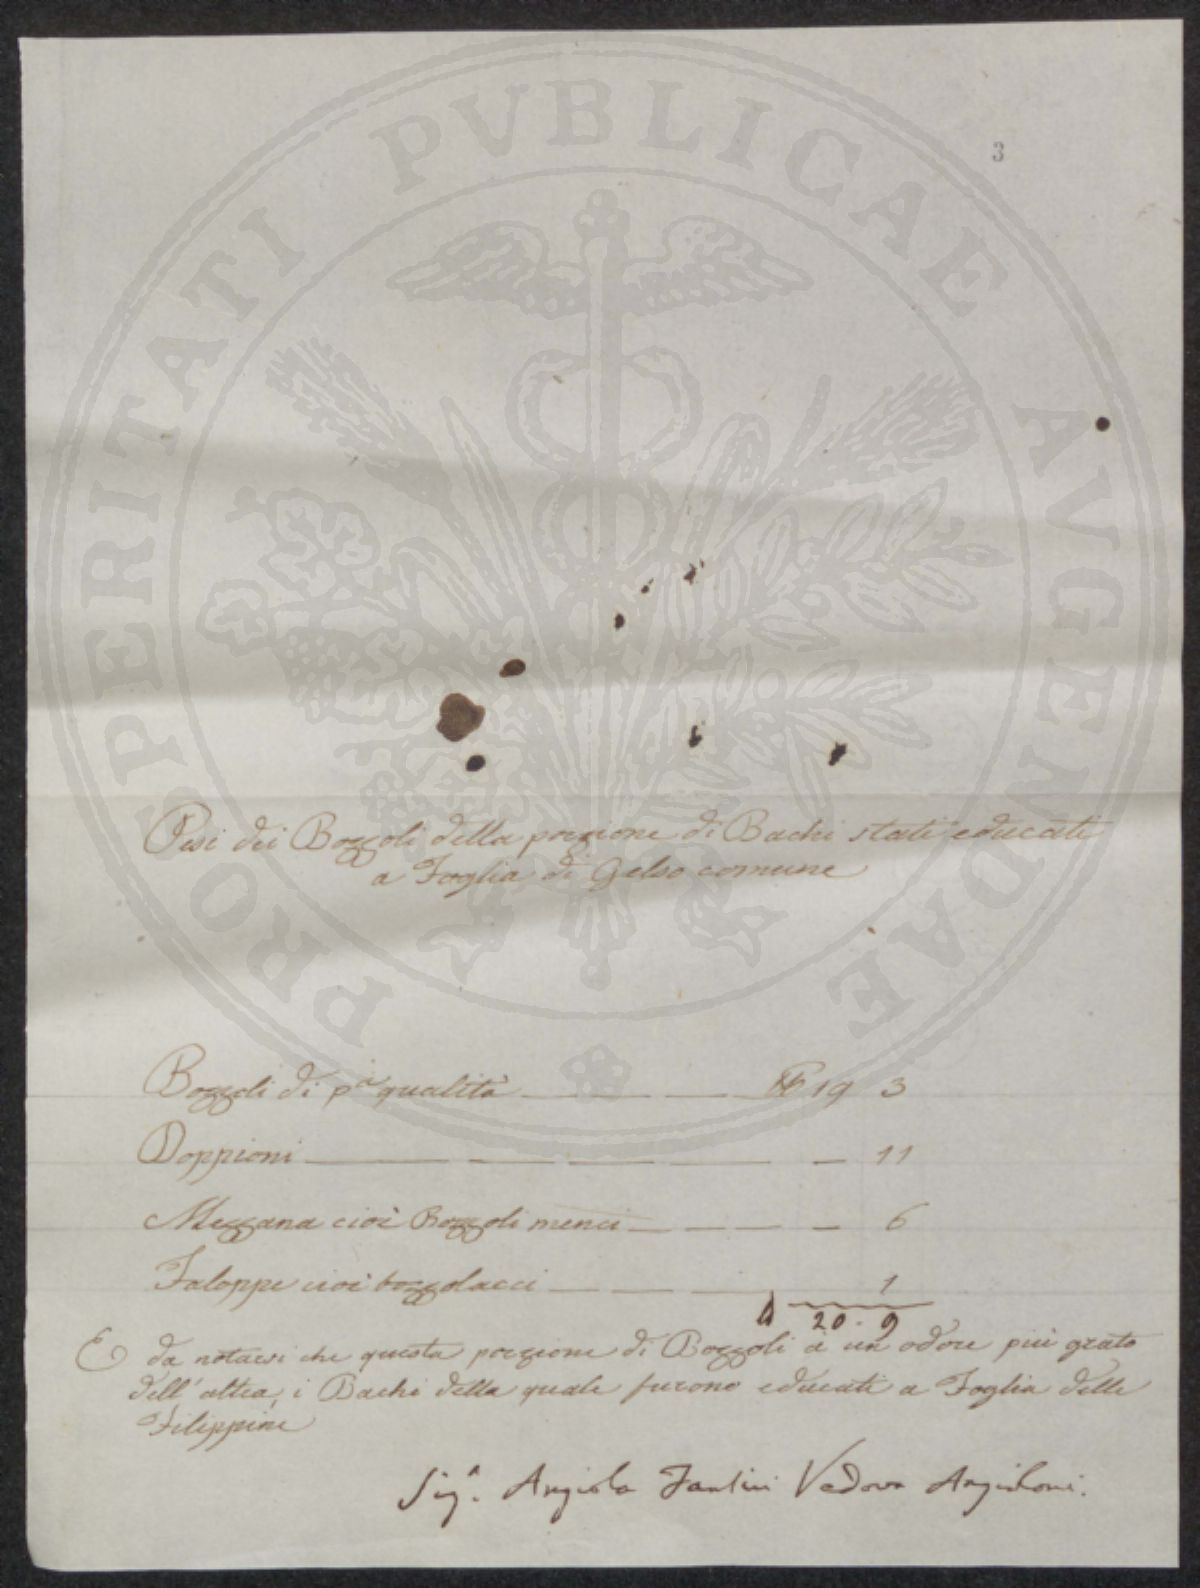 PROSPERITATI PVBLICAE AVGENDAE
3
Pesi dei Bozzoli della porzione di Bachi stati educati
a Foglia di Gelso comune
Bozzoli di pª qualità ℔ 19 3
Doppioni 11
Mezzana cioè Bozzoli menci 6
Faloppe cioè bozzolacci 1
20 - 9
E da notarsi che questa porzione di Bozzoli à un odore più grato
dell'altra, i Bachi della quale furono educati a Foglia delle
Filippine
Sigª. Angiola Fantini Vedova